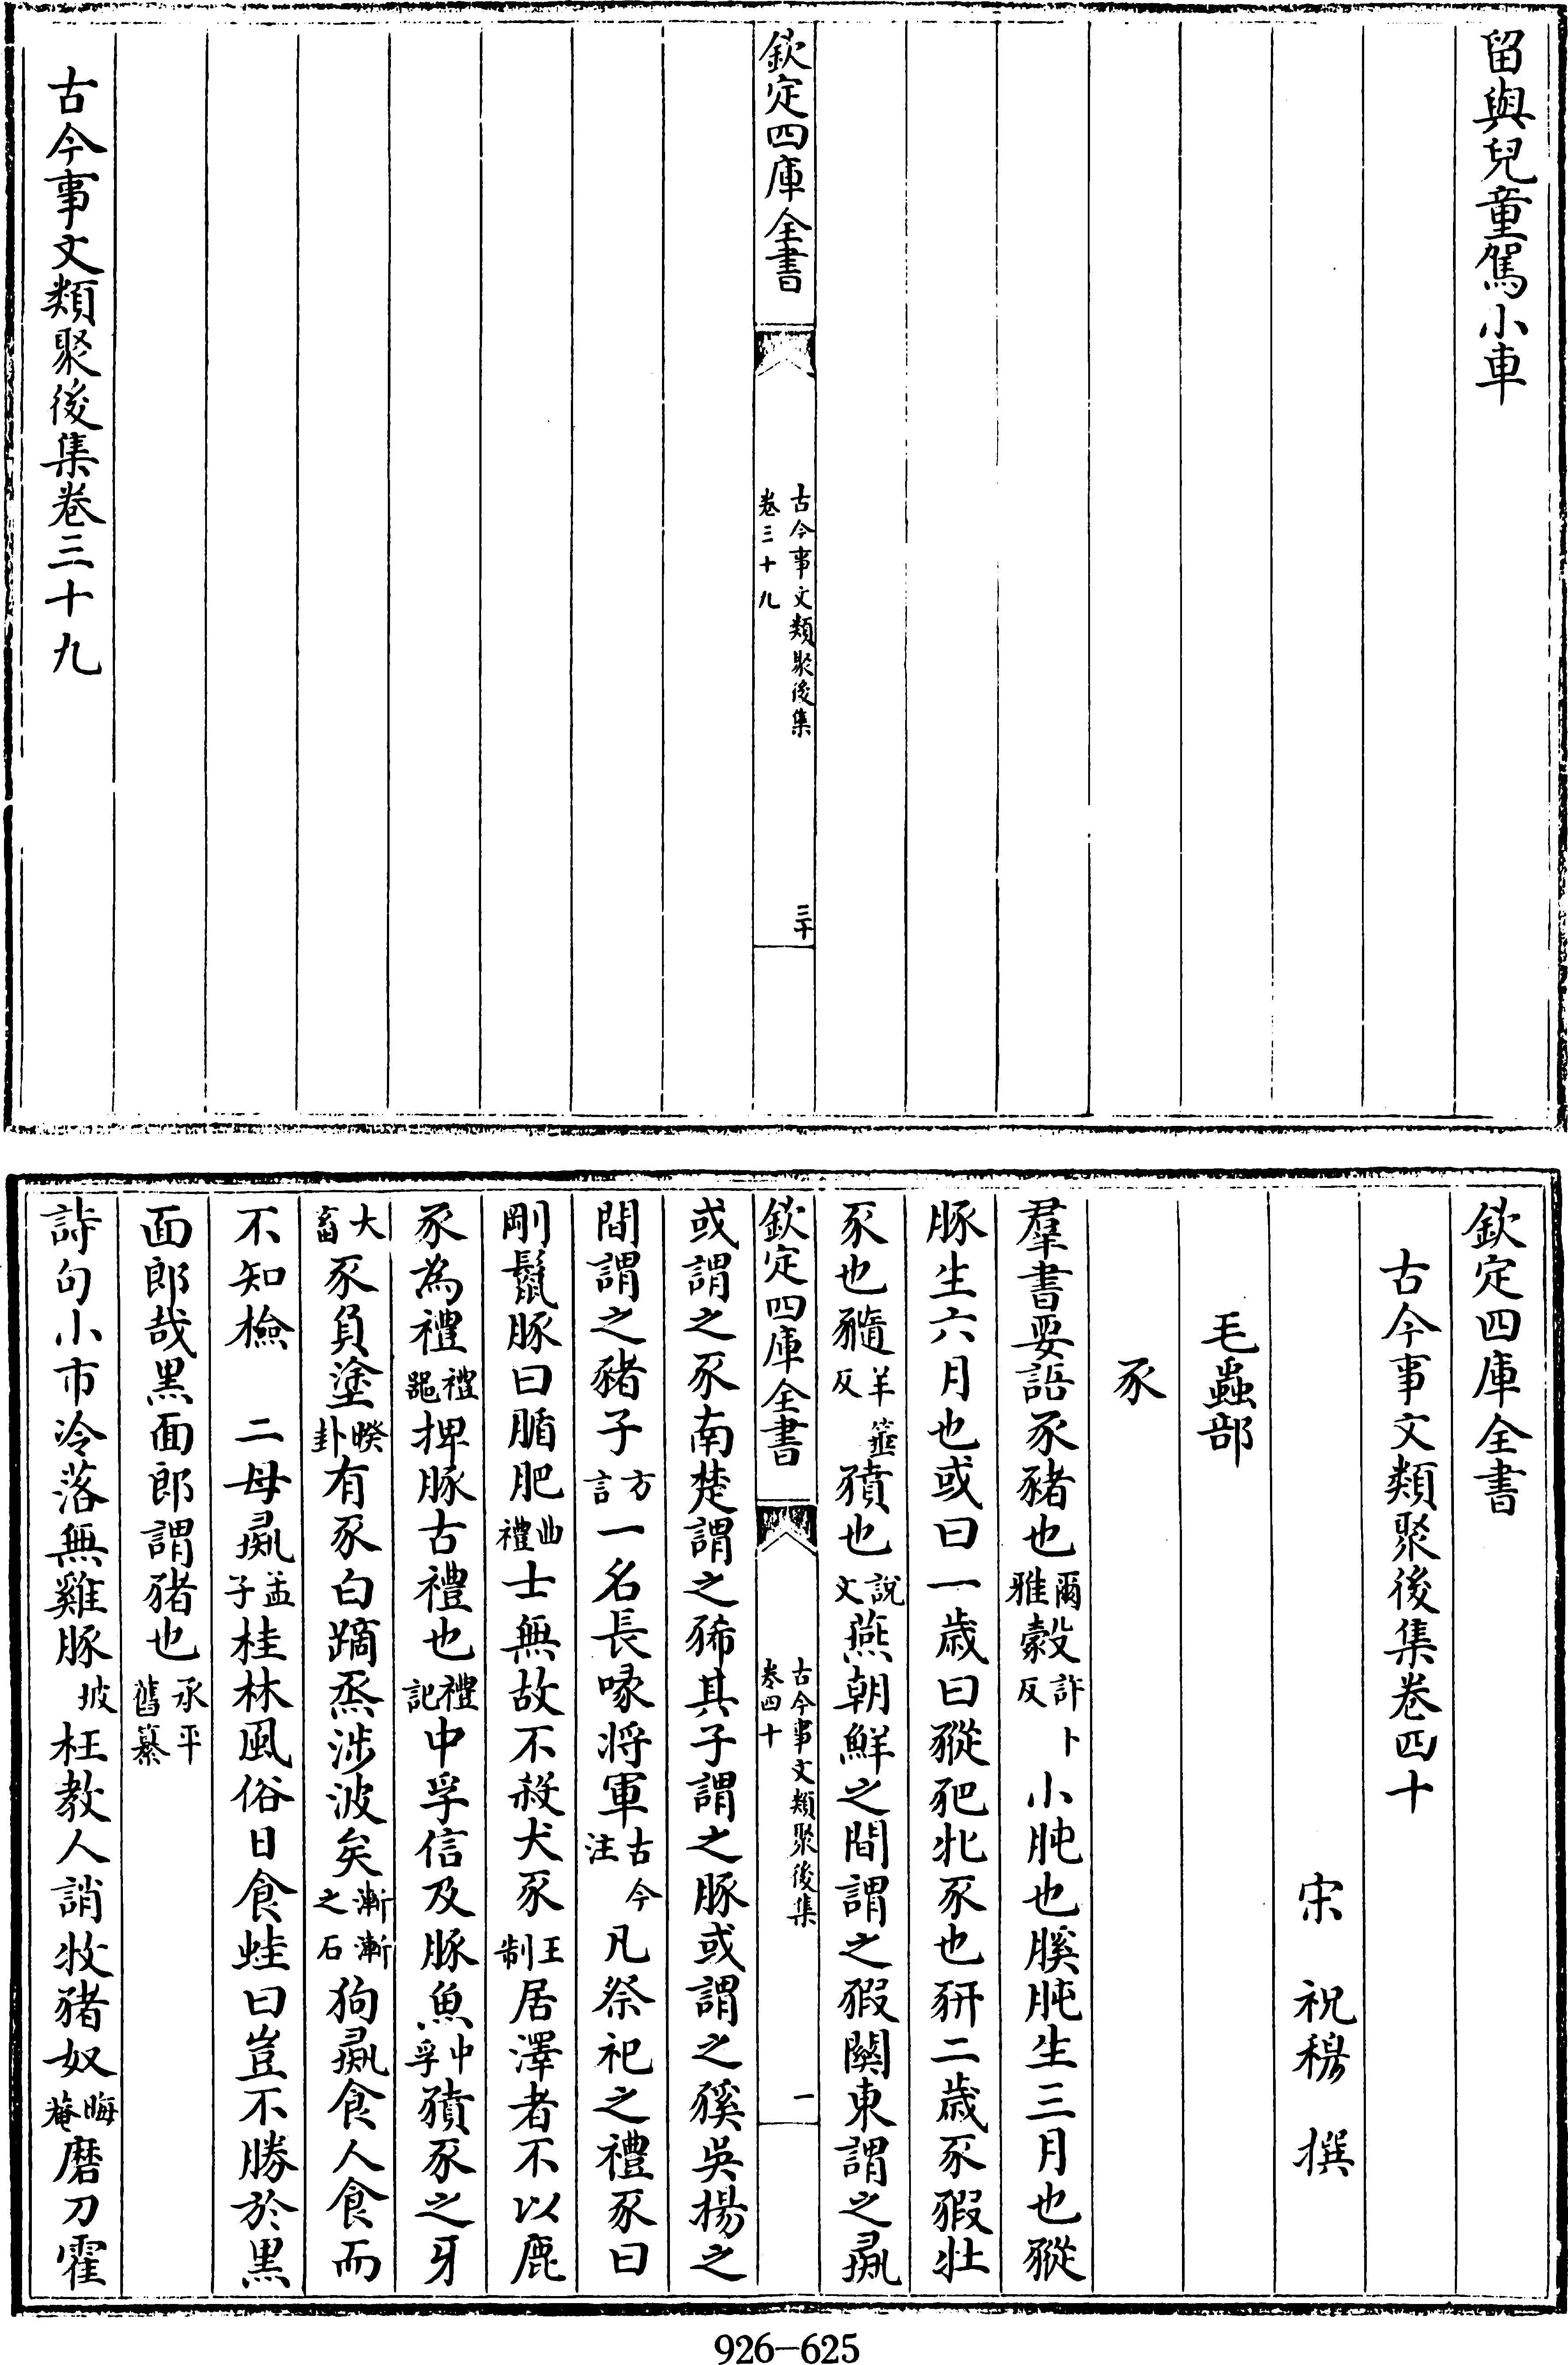 留與兒童駕小車
欽定四庫全書
古今事文類聚後集
卷三十九
三十
古今事文類聚後集卷三十九
欽定四庫全書
古今事文類聚後集卷四十
宋 祝穆 撰
毛蟲部
豕
羣書要語豕豬也爾雅豰許卜反小肫也豯肫生三月也豵
豚生六月也或曰一歳曰豵豝牝豕也豜二歳豕豭牡
豕也䝐羊箠反豶也說文燕朝鮮之間謂之豭關東謂之彘
欽定四庫全書
古今事文類聚後集
卷四十
一
或謂之豕南楚謂之豨其子謂之豚或謂之豯吳揚之
間謂之豬子方言一名長喙將軍古今注凡祭祀之禮豕曰
剛鬛豚曰腯肥曲禮士無故不殺犬豕王制居澤者不以鹿
豕為禮禮器捭豚古禮也禮記中孚信及豚魚中孚豶豕之牙
大畜豕負塗睽卦有豕白蹢烝涉波矣漸漸之石狗彘食人食而
不知檢 二母彘孟子桂林風俗日食蛙曰豈不勝於黒
面郎哉黒面郎謂豬也承平舊纂
詩句小市冷落無雞豚坡枉教人誚牧豬奴晦菴磨刀霍
926-625